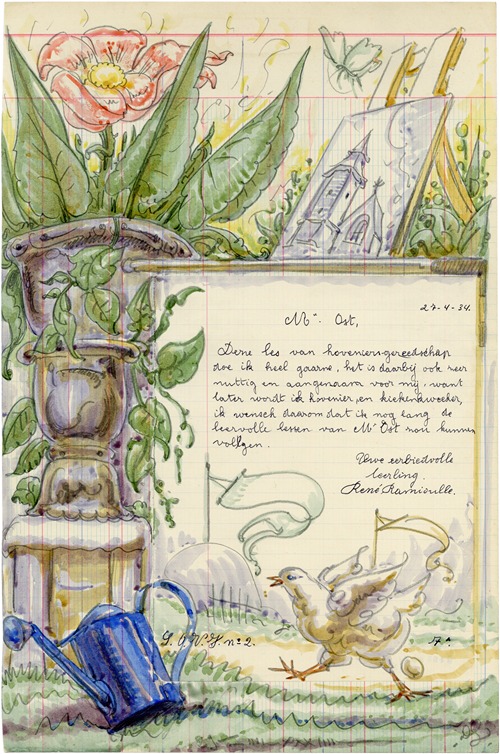 27-4-34.
Mr. Ost,
Deze les van hoveniersgereedschap
doe ik heel gaarne, het is daarbij ook zeer
nuttig en aangenaam voor mij, want
later wordt ik hovenier en kiekenskweeker,
ik wensch daarom dat ik nog lang de
leervolle lessen van Mr Ost zou kunnen
volgen.
Uwe eerbiedvolle
leerling.
René Ramioulle.
S. O. V. H. no 2.